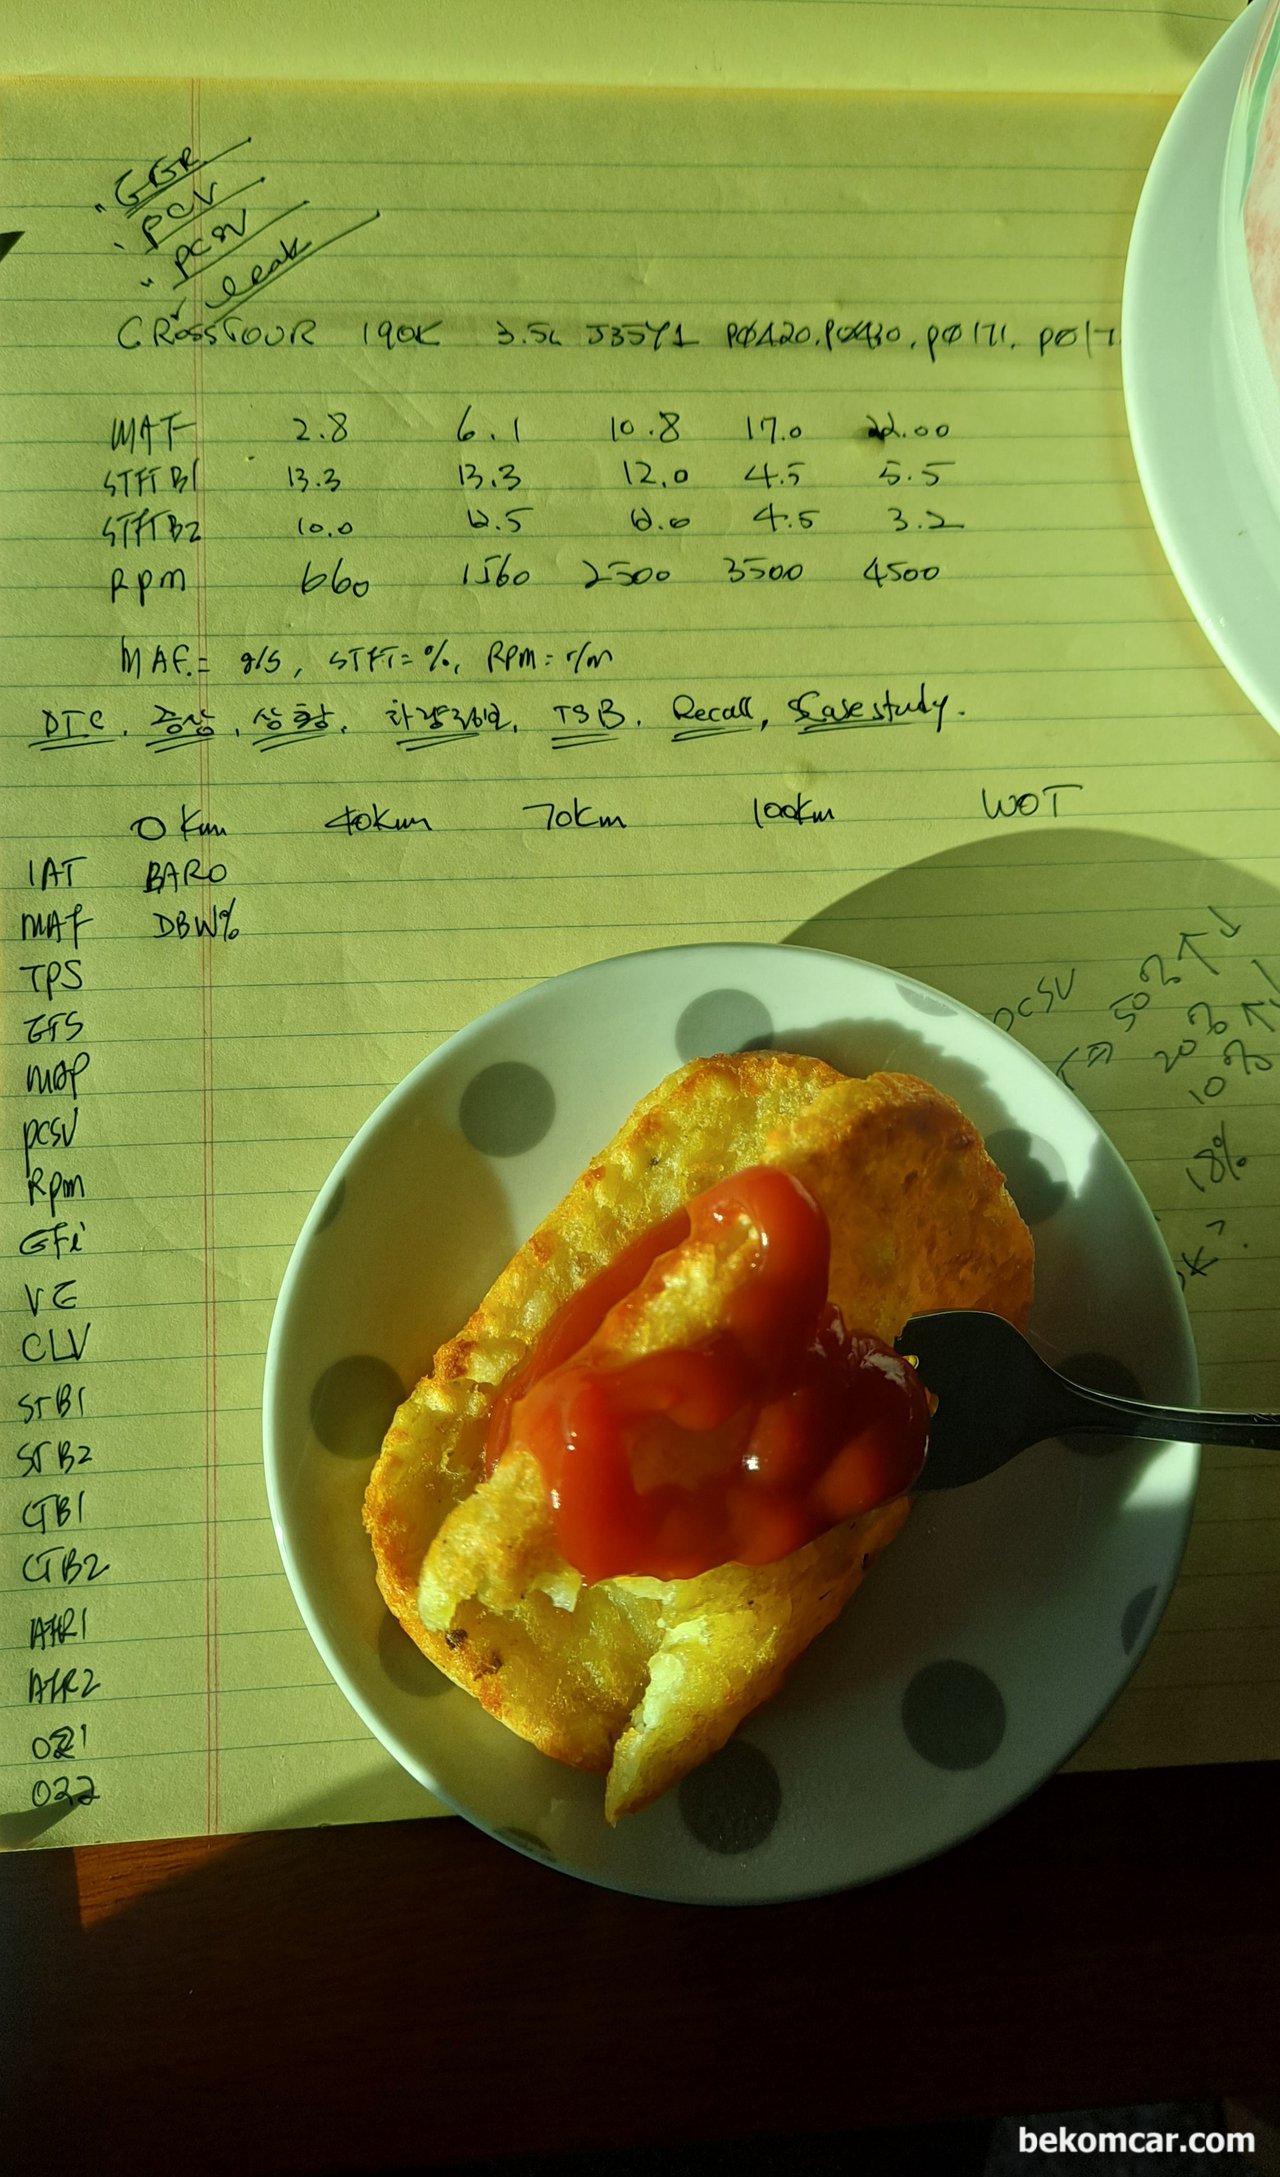 EGR
PCV
PCSV
leak
CROSSTOUR 190K 3.5L J35Y1 PØ420, PØ430, PØ171, PØ17
MAF 2.8 6.1 10.8 17.0 22.00
STFTB1 13.3 13.3 12.0 4.5 5.5
STFTB2 10.0 12.5 12.0 4.5 3.2
Rpm 660 1560 2500 3500 4500
MAF= g/s, STFT=%, Rpm=r/m
DTC, 증상, 상황, 차량정보, TSB, Recall, Case study.
0 Km 40Km 70Km 100Km WOT
IAT BARO
MAF DBW%
TPS
MAP
PCSV
Rpm
VE
CLV
STB1
STB2
LTB1
LTB2
AFR1
AFR2
O21
O22
PCSV 50% ↑ ↓
20% ↑
10%
18%
bekomcar.com